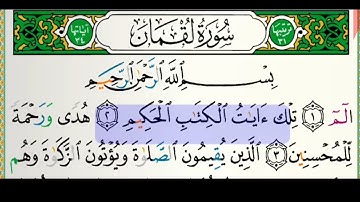 ترتيبها ٣١ سُورَةُ لُقْمَانَ آياتها ٣٤
بِسْمِ ٱللَّهِ ٱلرَّحْمَٰنِ ٱلرَّحِيمِ
الٓمٓ ١ تِلْكَ ءَايَٰتُ ٱلْكِتَٰبِ ٱلْحَكِيمِ ٢ هُدًى وَرَحْمَةً
لِّلْمُحْسِنِينَ ٣ ٱلَّذِينَ يُقِيمُونَ ٱلصَّلَوٰةَ وَيُؤْتُونَ ٱلزَّكَوٰةَ وَهُم